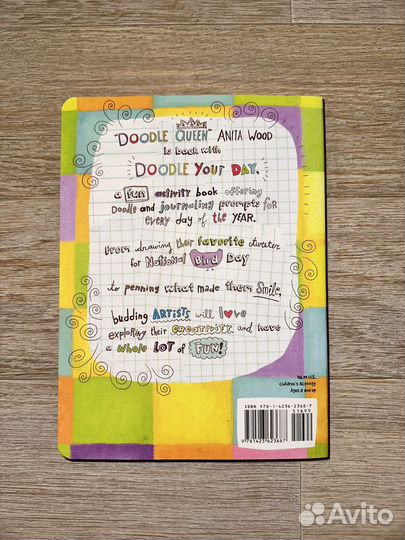 "DOODLE QUEEN" ANITA WOOD
is back with
DOODLE YOUR DAY,
a fun activity book offering
Doodle and journaling prompts for
every day of the YEAR.
From drawing their favorite tweeter
for National Bird Day
to penning what made them Smile,
budding ARTISTS will love
exploring their creativity and have
a whole LOT of FUN!
$16.99 U.S.
Children's Activity
Ages 8 and up
ISBN 978-1-4236-2368-7
51699
9 781423 623687
Avito